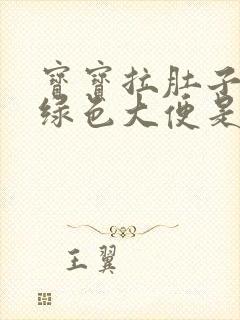 寳寳拉肚子
绿色大便是
王翼